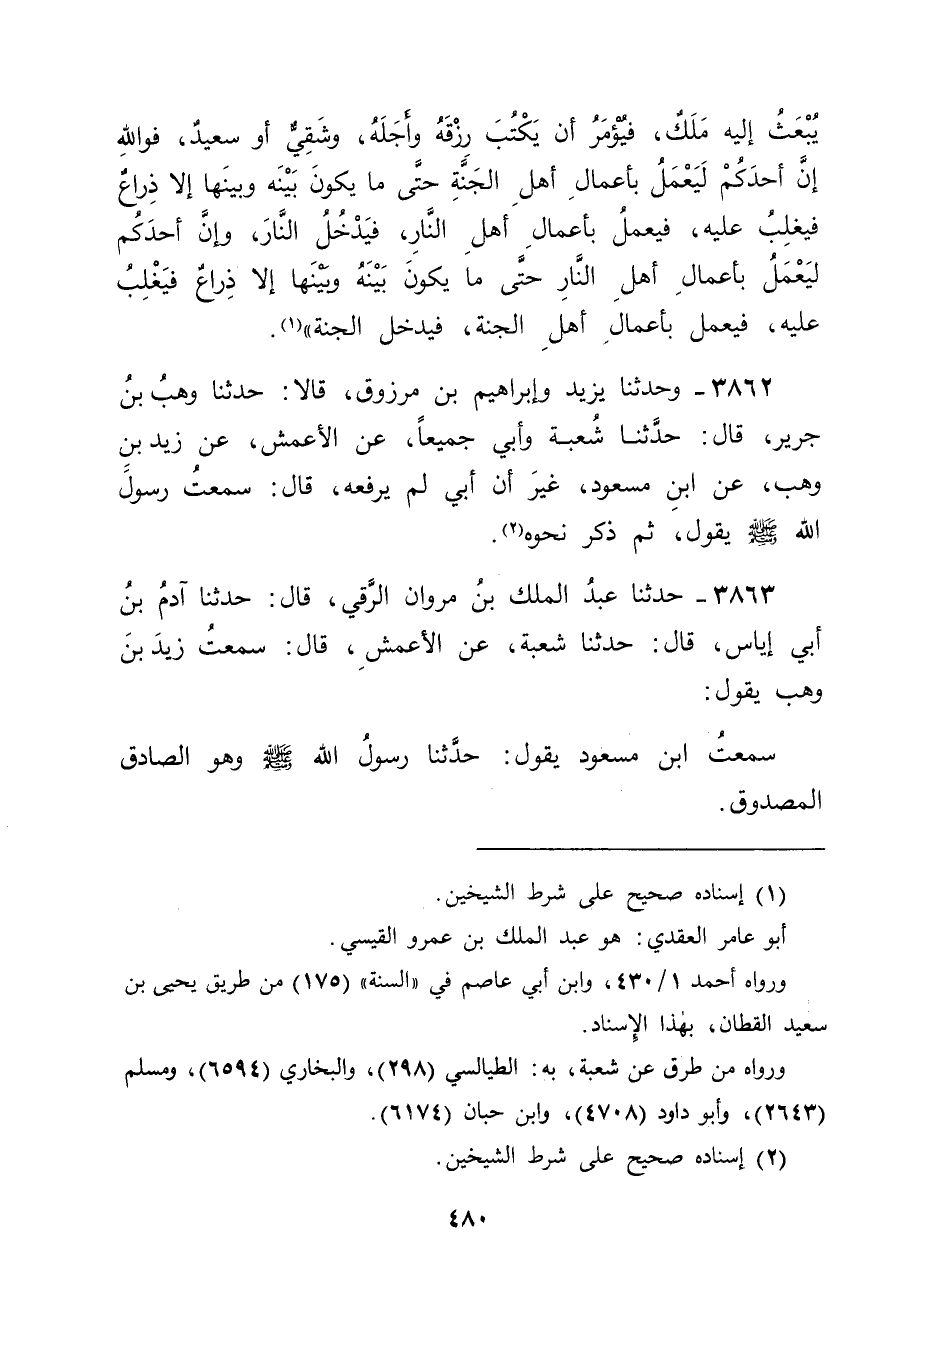 يُبْعَثُ إليه مَلَكٌ، فيُؤْمَرُ أن يَكْتُبَ رِزْقَهُ وأَجَلَهُ، وشَقِيٌّ أو سعيدٌ، فواللهِ
إنَّ أحدَكُمْ لَيَعْمَلُ بأعمالِ أهلِ الجَنَّةِ حتَّى ما يكونَ بَيْنَه وبينَها إلا ذِراعٌ
فيغلِبُ عليه، فيعملُ بأعمالِ أهلِ النَّارِ، فيَدْخُلُ النَّارَ، وإنَّ أحدَكُم
ليَعْمَلُ بأعمالِ أهلِ النَّارِ حتَّى ما يكونَ بَيْنَهُ وبَيْنَها إلا ذِراعٌ فيَغْلِبُ
عليه، فيعمل بأعمالِ أهلِ الجنة، فيدخل الجنة»(١).
٣٨٦٢ - وحدثنا يزيد وإبراهيم بن مرزوق، قالا: حدثنا وهبُ بنُ
جرير، قال: حدَّثنا شُعبة وأبي جميعاً، عن الأعمش، عن زيد بن
وهب، عن ابنِ مسعود، غيرَ أن أبي لم يرفعه، قال: سمعتُ رسولَ
الله ﷺ يقول، ثم ذكر نحوه(٢).
٣٨٦٣ - حدثنا عبدُ الملك بنُ مروان الرَّقي، قال: حدثنا آدمُ بنُ
أبي إياس، قال: حدثنا شعبة، عن الأعمشِ، قال: سمعتُ زيدَ بنَ
وهب يقول:
سمعتُ ابن مسعود يقول: حدَّثنا رسولُ الله ﷺ وهو الصادق
المصدوق.
(١) إسناده صحيح على شرط الشيخين.
أبو عامر العقدي: هو عبد الملك بن عمرو القيسي.
ورواه أحمد ٤٣٠/١، وابن أبي عاصم في «السنة» (١٧٥) من طريق يحيى بن
سعيد القطان، بهٰذا الإِسناد.
ورواه من طرق عن شعبة، به: الطيالسي (٢٩٨)، والبخاري (٦٥٩٤)، ومسلم
(٢٦٤٣)، وأبو داود (٤٧٠٨)، وابن حبان (٦١٧٤).
(٢) إسناده صحيح على شرط الشيخين.
٤٨٠